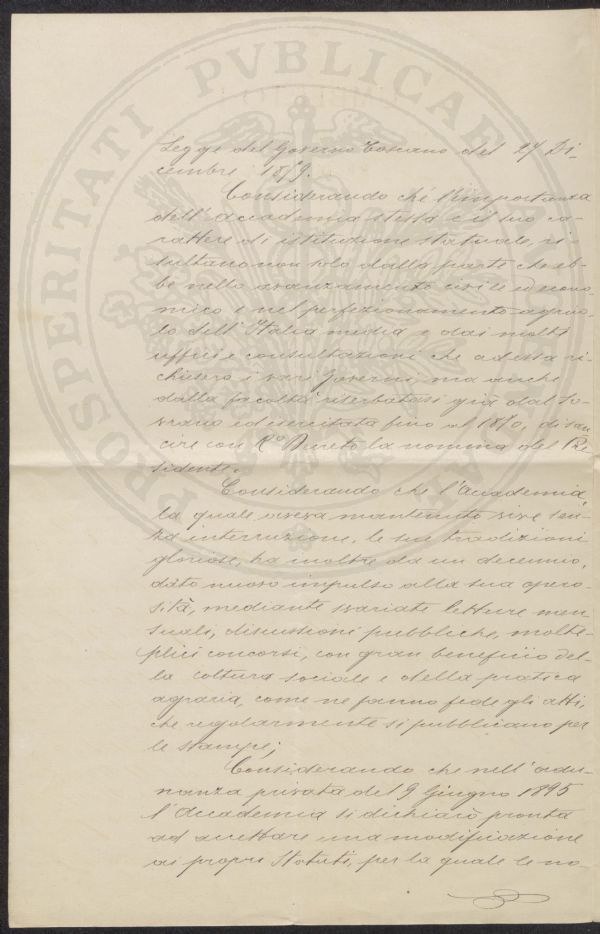 PROSPERITATI PVBLICAE
Legge del Governo Toscano del 27 Di-
cembre 1859.
Considerando che l'importanza
dell'Accademia stessa e il suo ca-
rattere di istituzione statuale, ri-
sultano non solo dalla parte che eb-
be nello avanzamento civile ed econo-
mico e nel perfezionamento agrico-
lo dell'Italia media e dai molti
uffici e consultazioni che ad essa ri-
chiesero i vari Governi, ma anche
dalla facoltà riserbatasi già dal So-
vrano ed esercitata fino al 1870, di san-
cire con R.o Decreto la nomina del Pre
sidente.
Considerando che l'Accademia,
la quale aveva mantenuto vive sen-
za interruzione, le sue tradizioni
gloriose, ha inoltre da un decennio,
dato nuovo impulso alla sua opero-
sità, mediante svariate letture men
suali, discussioni pubbliche, molte-
plici concorsi, con gran beneficio del-
la coltura sociale e della pratica
agraria, come ne fanno fede gli atti,
che regolarmente si pubblicano per
le stampe;
Considerando che nell'adu-
nanza privata del 9 Giugno 1895
l'Accademia si dichiarò pronta
ad accettare una modificazione
ai propri Statuti, per la quale le no-